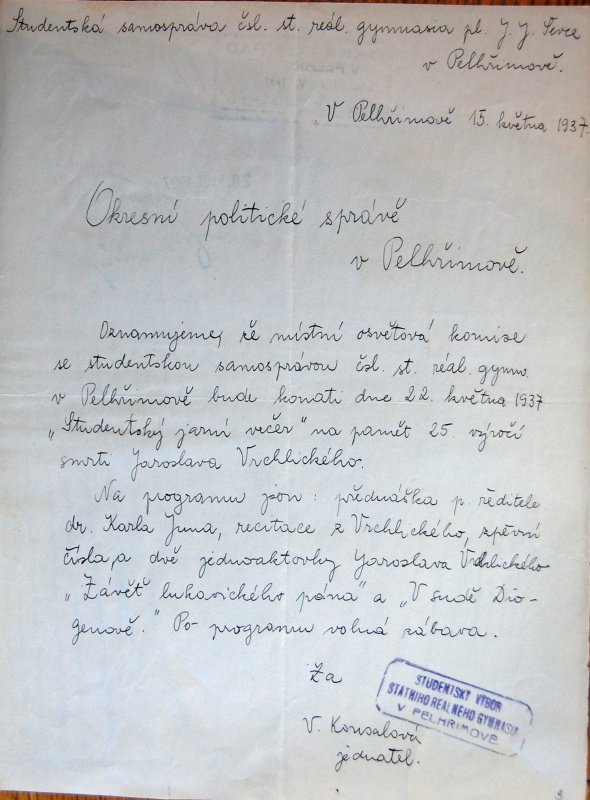 Studentská samospráva čsl. st. reál. gymnasia pl. J. J. Švece
v Pelhřimově.
V Pelhřimově 15. května 1937.
Okresní politické správě
v Pelhřimově.
Oznamujeme, že místní osvětová komise
se studentskou samosprávou čsl. st. reál. gymn.
v Pelhřimově bude konati dne 22. května 1937
„Studentský jarní večer" na pamět 25. výročí
smrti Jaroslava Vrchlického.
Na programu jsou: přednáška p. ředitele
dr. Karla Juna, recitace z Vrchlického, zpěvní
čísla, a dvě jednoaktovky Jaroslava Vrchlického
„Závěť lukavického pána" a „V sudě Dio-
genově." Po programu volná zábava.
Za
STUDENTSKÝ VÝBOR
STÁTNÍHO REÁLNÉHO GYMNASIA
V PELHŘIMOVĚ
V. Konsalová
jednatel.